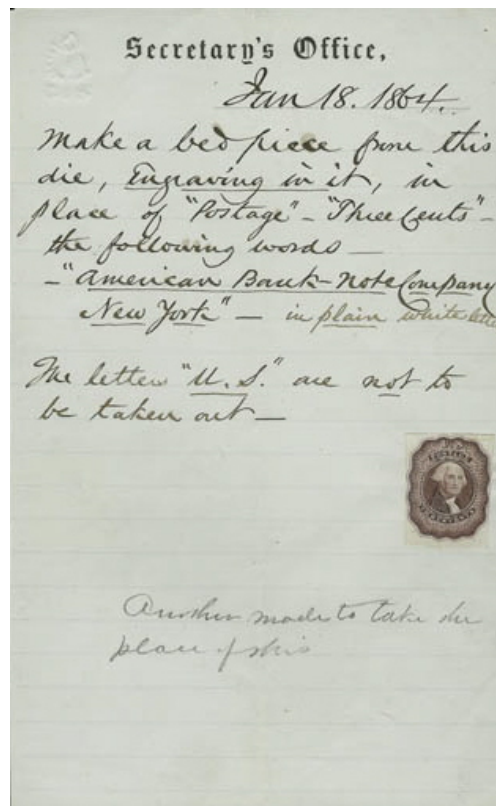 Secretary's Office,
Jan 18. 1864.
Make a bed piece from this
die, Engraving in it, in
place of "Postage" – "Three Cents" –
the following words –
– "American Bank-Note Company
New York" – in plain white letters
The letters "U. S." are not to
be taken out –
Another made to take the
place of this